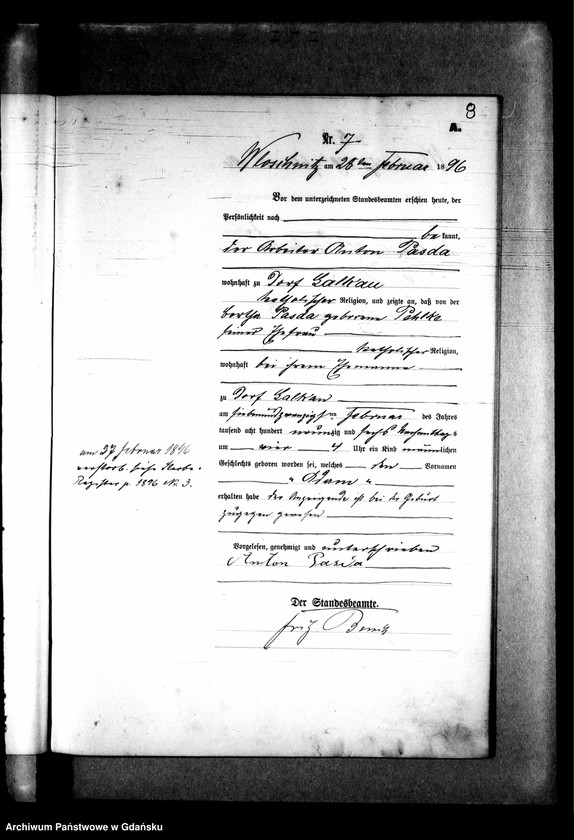 8
A.
Nr. 7
am 28ten Februar 1896
Vor dem unterzeichneten Standesbeamten erschien heute, der
Persönlichkeit nach
be kannt,
der Arbeiter Anton Pasda
wohnhaft zu Dorf Galkau
katholischer Religion, und zeigte an, daß von der
Bertha Pasda geborene Pehlke
seiner Ehefrau
katholischer Religion,
wohnhaft bei ihrem Ehemanne
zu Dorf Galkau
am siebenundzwanzigsten Februar des Jahres
tausend acht hundert neunzig und sechs Nachmittags
um vier 4 Uhr ein Kind männlichen
Geschlechts geboren worden sei, welches den Vornamen
„ Adam „
erhalten habe der Anzeigende ist bei der Geburt
zugegen gewesen
Vorgelesen, genehmigt und unterschrieben
Anton Pasda
Der Standesbeamte.
Fritz
am 27 Februar 1896
verstorb. siehe Sterbe-
Register p. 1896 No. 3.
Archiwum Państwowe w Gdańsku